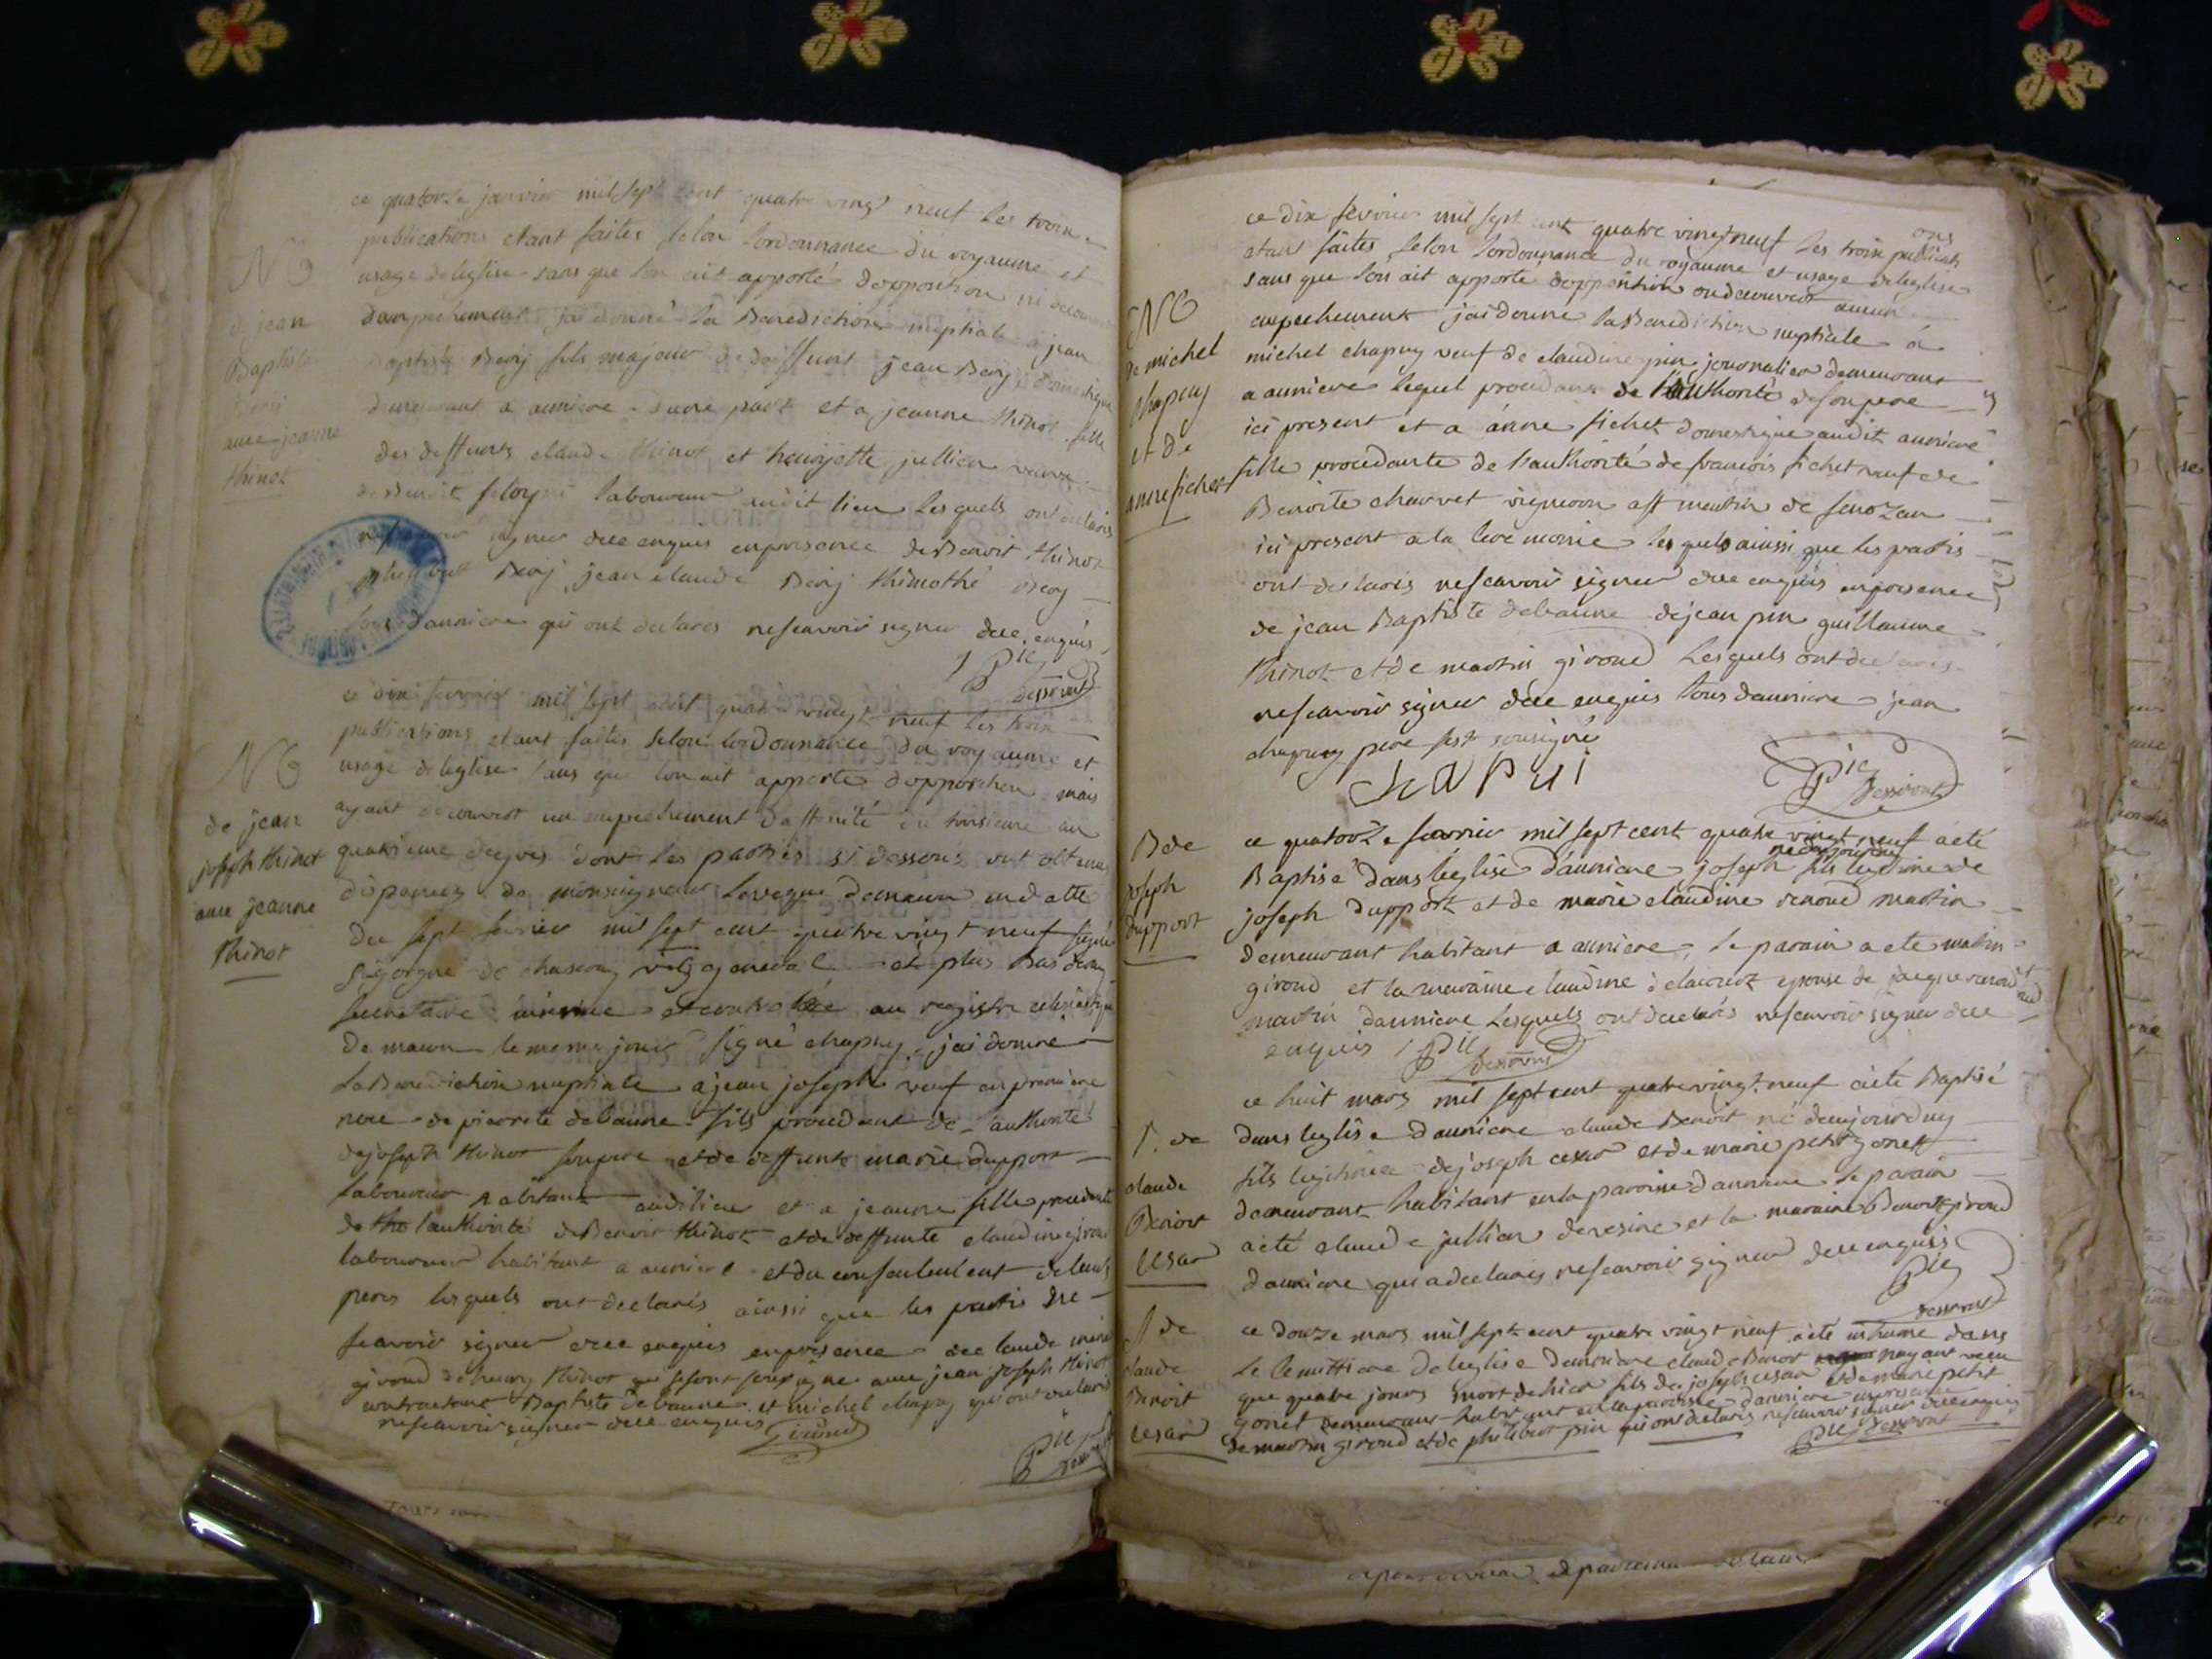 ce quatorze janvier mil sept cent quatre vingt neuf les trois
publications etant faites selon lordonnance du royaume et
usage deleglise sans que lon ait apporté dopposition ni decouvert
dempechement jai donné la Benediction nuptiale a jean
Baptiste Bery fils majeur de deffunt jean Bery domestique
demeurant a auniere dune part et a jeanne thinot fille
des deffunts claude thinot et henrjette jullien veuve
de Benoit laboureur audit lieu lesquels ont declarés
signer dece enquis enpresence de Benoit thinot
Bery jean claude Bery thimothé Bery
tous dauniere qui ont declarés nescavoir signer dece enquis
Pic
dessirout
M
de jean
Baptiste
Bery
avec jeanne
thinot
ce dix fevrier mil sept cent quatre vingt neuf les trois
publications etant faites selon lordonnance du royaume et
usage deleglise sans que lon ait apporté dopposition mais
ayant decouvert un empechement daffinité du troisieme au
quatrieme degres dont les parties si dessous ont obtenu
dispences de monseigneur leveque demacon endatte
du sept fevrier mil sept cent quatre vingt neuf signé
sigorgne de vic general et plus Bas
secretaire au registre eclesiastique
de macon le meme jour signé chapuy jai donné
la Benediction nuptiale a jean joseph veuf en premiere
noce de pierrete debaune fils procedant de lauthorité
dejoseph thinot son pere et de deffunte marie dupport
laboureur habitant audit lieu et a jeanne fille procedante
de lauthorité de Benoit thinot et de deffunte claudine giroud
laboureur habitant a auniere et du consentement de leurs
peres lesquels ont declarés ainsi que les partis ne
scavoir signer dece enquis enpresence de claude
giroud de henry thinot qui se sont sousigné avec jean joseph thinot
contractant Baptiste debaune et michel chapuy qui ont declarés
nescavoir signer dece enquis Giroud
Pic
M
de jean
joseph thinot
avec jeanne
thinot
ce dix fevrier mil sept cent quatre vingt neuf les trois publications
etant faites selon lordonnance du royaume et usage deleglise
sans que lon ait apporté dopposition oudecouvert aucun
empechement jai donné la Benediction nuptiale á
michel chapuy veuf de claudine pin journalier demeurant
a auniere lequel procedant de lauthorité de son pere
ici present et a ánne fichet domestique audit auniere
fille procedante de lauthorité de francois fichet veuf de
Benoite chauvet vigneron a st martin de senozan
ici present a la ceremonie lesquels ainsi que les partis
ont declarés nescavoir signer dece enquis enpresence
de jean Baptiste debaune de jean pin guillaume
thinot et de martin giroud lesquels ont declarés
nescavoir signer dece enquis tous dauniere jean
chapuy pere sest sousigné
chapui
Pic
dessirout
M
de michel
chapuy
et de
anne fichet
ce quatorze fevrier mil sept cent quatre vingt neuf a eté
Baptisé dans léglise dauniere joseph né daujourduy fils legitime de
joseph dupport et de marie claudine renoud martin
demeurant habitant a auniere, le parain a eté matin
giroud et la maraine claudine epouse de jaque renoud
martin dauniere lesquels ont declarés nescavoir signer dece
enquis Pic
dessirout
B de
joseph
dupport
ce huit mars mil sept cent quatre vingt neuf a eté Baptisé
dans leglise dauniere claude Benoit né daujourduy
fils legitime de joseph cesar et de marie petit gonet
demeurant habitant en la paroisse dauniere le parain
a eté claude jullien deresine et la maraine Benoite giroud
dauniere qui a declarés nescavoir signer dece enquis
Pic
dessirout
B. de
claude
Benoit
cesar
ce douze mars mil sept cent quatre vingt neuf a été inhumé dans
le cemittiere deleglise dauniere claude Benoit nayant vecu
que quatre jours mort de hier fils de joseph cesar et de marie petit
gonet demeurant habitant en la paroisse dauniere enpresence
de martin giroud et de philibert pin qui ont declarés nescavoir signer dece enquis
Pic dessirout
S de
claude
Benoit
cesar